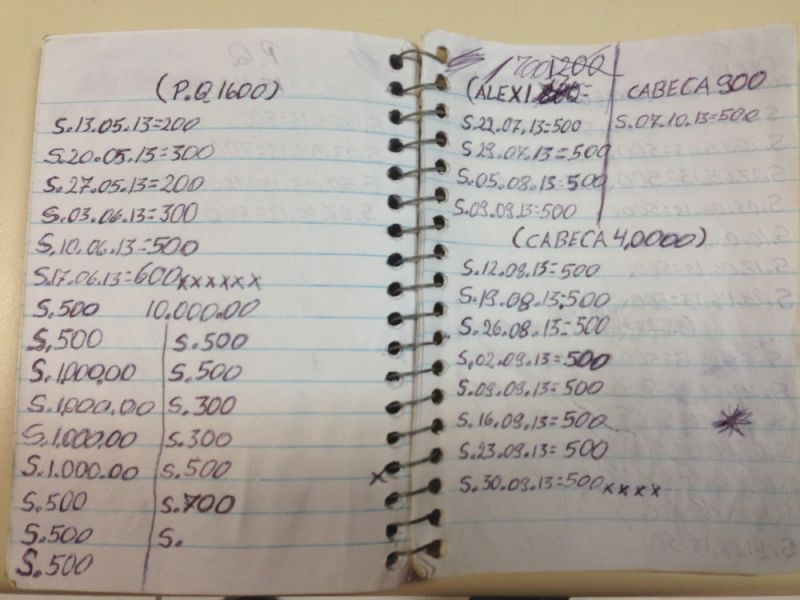 (P.Q 1600)
S.13.05.13=200
S.20.05.13=300
S.27.05.13=200
S.03.06.13=300
S.10.06.13=500
S.17.06.13=600xxxxxx
S.500 10.000.00
S.500
S.1.000.00
S.1.000.00
S.1.000.00
S.1.000.00
S.500
S.500
S.500
S.500
S.500
S.300
S.300
S.500
S.700
S.
1700 1200
(ALEX1
S.22.07.13=500
S 29.07.13=500
S.05.08.13=500
S.09.09.13=500
CABECA 900
S.07.10.13=500
(CABECA 4,0000)
S.12.08.13=500
S.19.08.13=500
S.26.08.13=500
S.02.09.13=500
S.09.09.13=500
S.16.09.13=500
S.23.09.13=500
x S.30.09.13=500xxxx